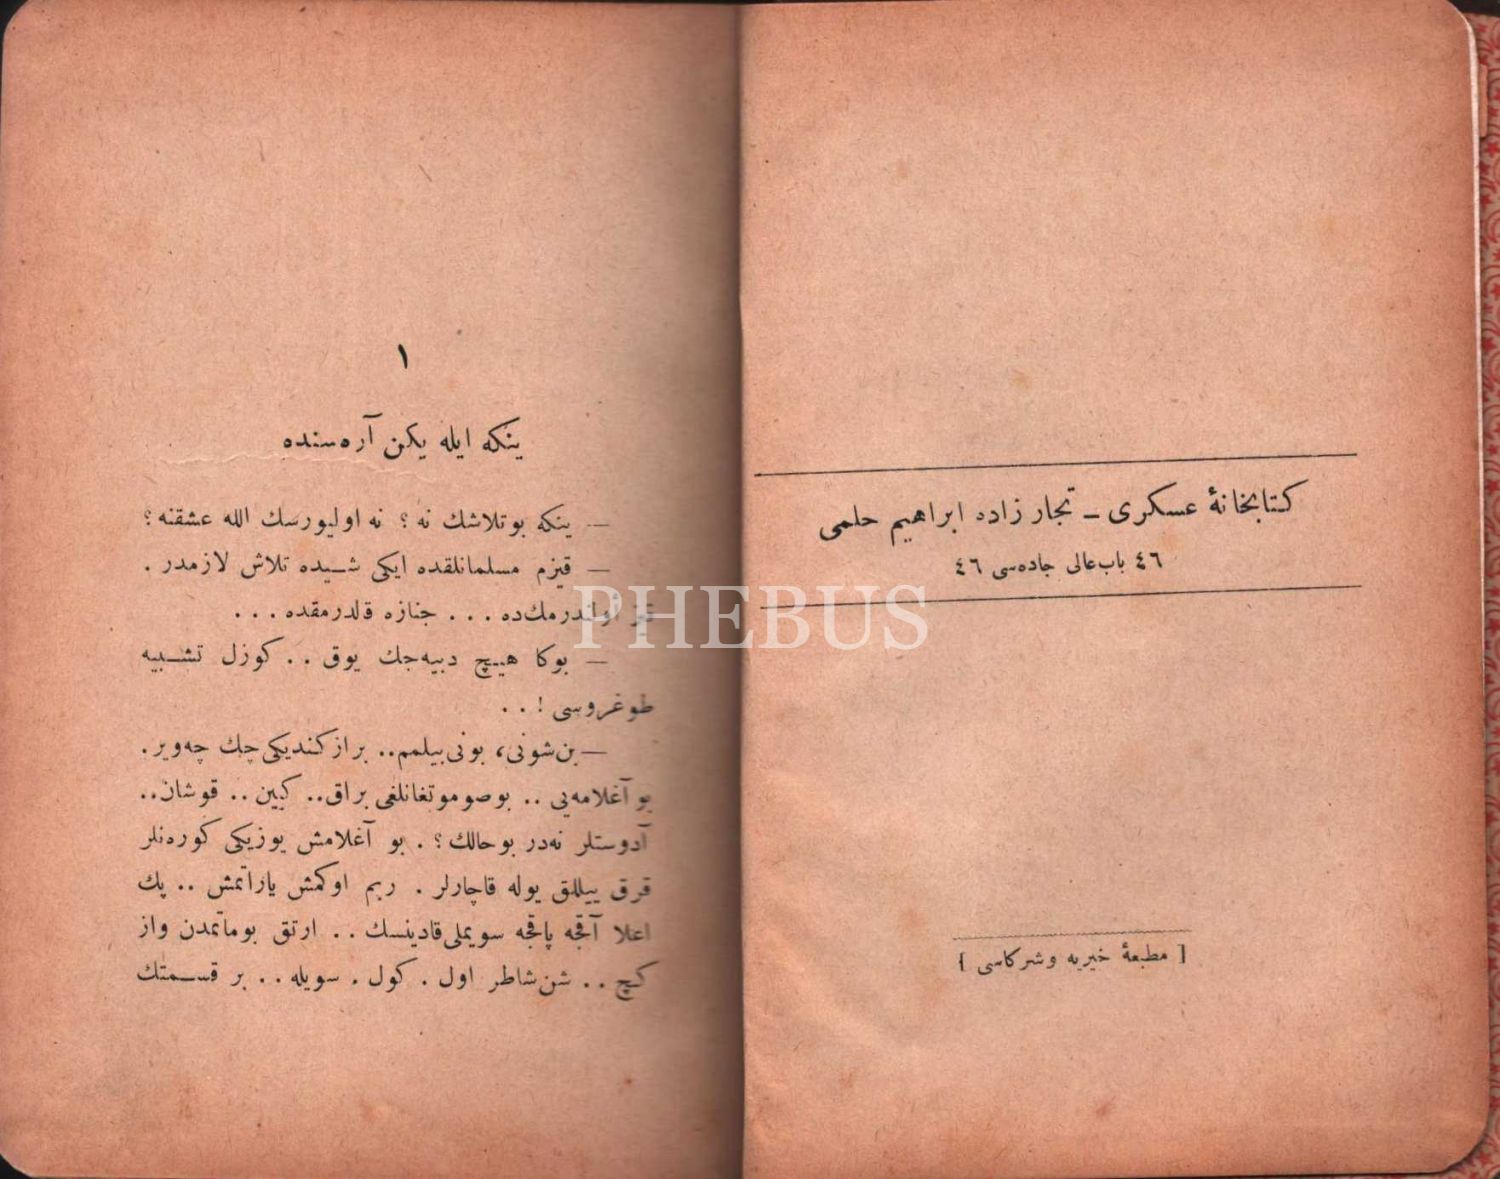 كتابخانۀ عسكری ـ تجار زاده ابراهیم حلمی
٤٦ باب عالی جاده‌سی ٤٦
[ مطبعۀ خیریه وشركاسی ]
١
ینكه ایله یكن آره‌سنده
— ینكه بوتلاشك نه؟ نه اولیورسك الله عشقنه؟
— قیزم مسلمانلقده ایكی شیده تلاش لازمدر .
قز اولندرمك‌ده . . . جنازه قلدرمقده . . .
— بوكا هیچ دییه‌جك یوق . . كوزل تشبیه
طوغروسی ! . .
— بن شونی، بونی بیلمم.. براز كندیكی چك چه‌ویر .
بو آغلامه‌یی . . بو صوموتغانلغی براق.. كیین . . قوشان..
آدوستلر نه‌در بو حالك ؟ . بو آغلامش یوزیكی كوره‌نلر
قرق ییللق یوله قاچارلر . ربم اوكمش یاراتمش . . پك
اعلا آقجه پاقجه سویملی قادینسك . . ارتق بوماتمدن واز
كچ . . شن شاطر اول . كول . سویله . . بر قسمتك
PHEBUS